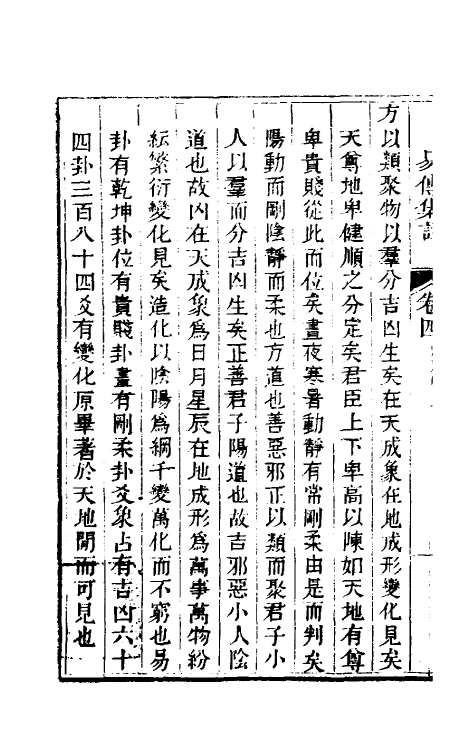 易傳集說
卷四
方以類聚物以羣分吉凶生矣在天成象在地成形變化見矣
天尊地卑健順之分定矣君臣上下卑高以陳如天地有尊
卑貴賤從此而位矣晝夜寒暑動靜有常剛柔由是而判矣
陽動而剛陰靜而柔也方道也善惡邪正以類而聚君子小
人以羣而分吉凶生矣正善君子陽道也故吉邪惡小人陰
道也故凶在天成象爲日月星辰在地成形爲萬事萬物紛
紜繁衍變化見矣造化以陰陽爲綱千變萬化而不窮也易
卦有乾坤卦位有貴賤卦畫有剛柔卦爻象占有吉凶六十
四卦三百八十四爻有變化原畢著於天地間而可見也